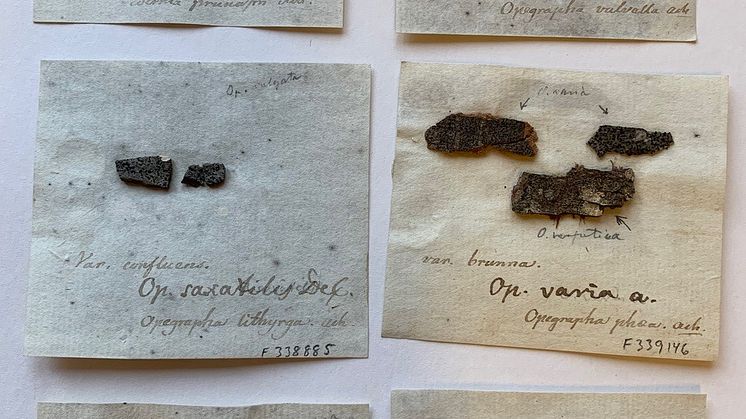 Opegrapha vulvella ach.
Op. vulgata
Var. confluens.
Op. saxatilis DeC.
Opegrapha lithyrga. ach.
F 338885
O. varia
O. vulgata
var. brunna.
Op. varia a.
Opegrapha phaea. ach.
F 339146